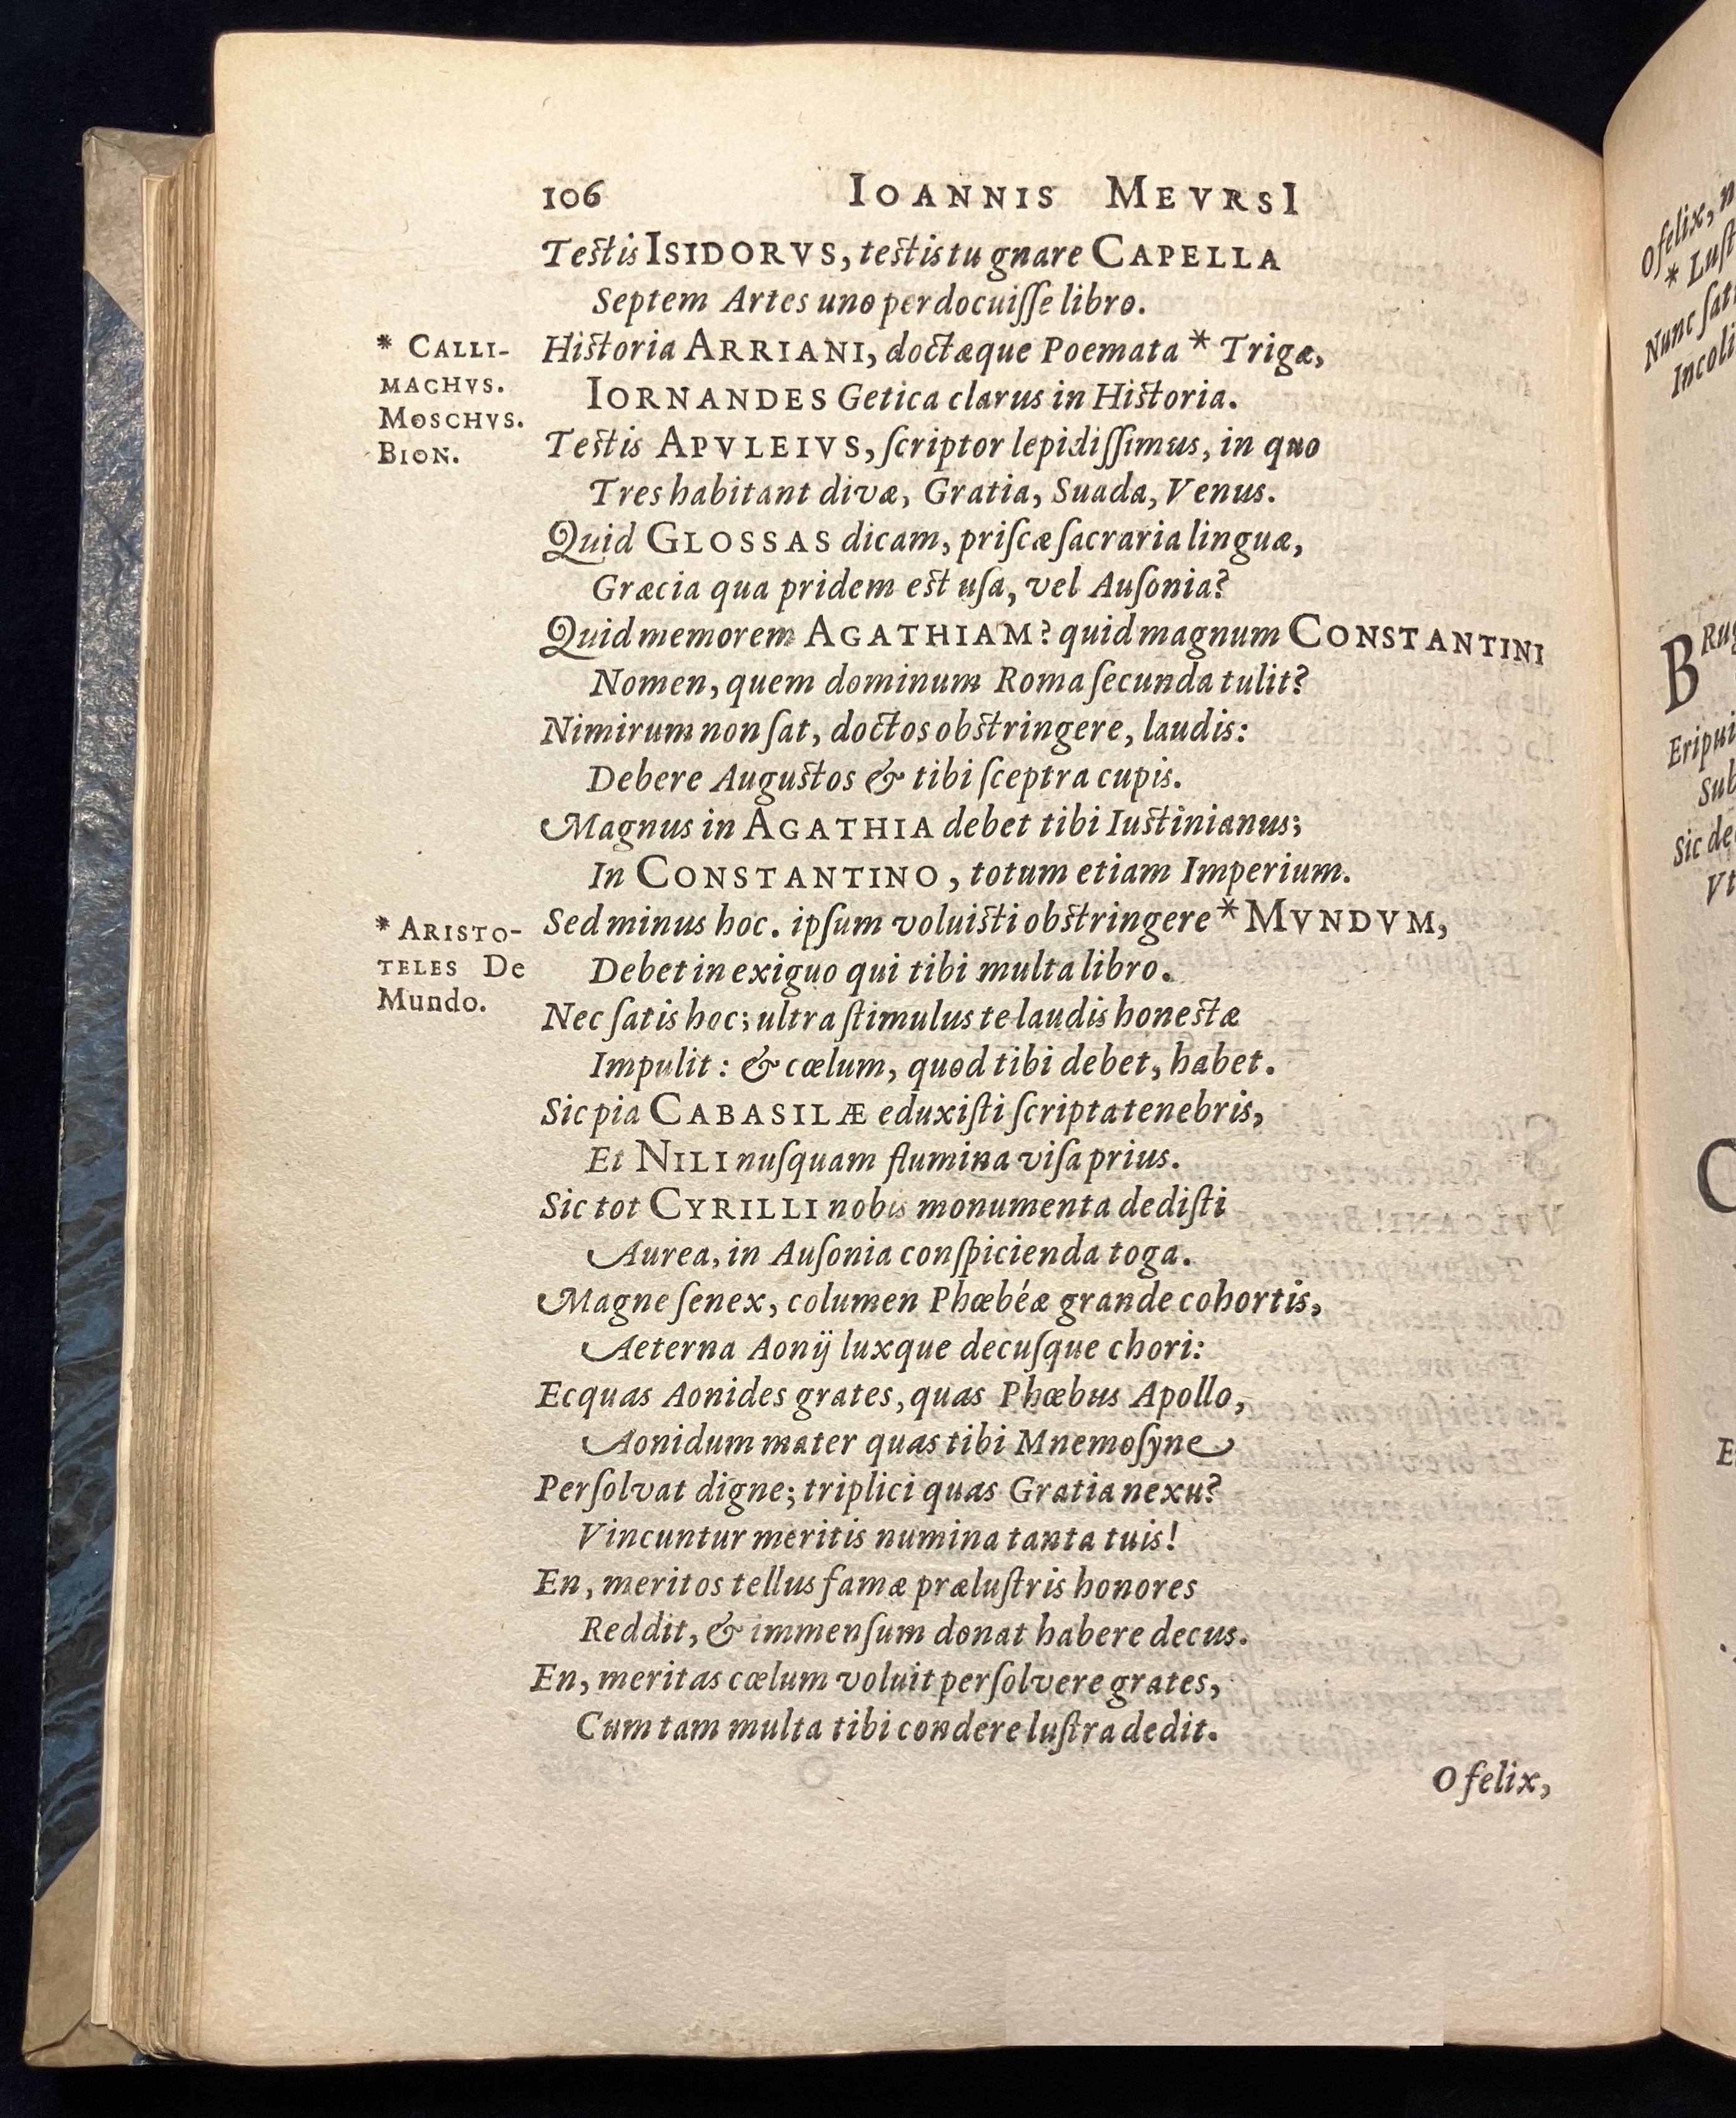 106 IOANNIS MEVRSI
Testis ISIDORVS, testis tu gnare CAPELLA
Septem Artes uno perdocuiſſe libro.
* CALLI-
MACHVS.
MOSCHVS.
BION.
Historia ARRIANI, doctæque Poemata * Trigæ,
IORNANDES Getica clarus in Historia.
Testis APVLEIVS, ſcriptor lepidiſſimus, in quo
Tres habitant divæ, Gratia, Suada, Venus.
Quid GLOSSAS dicam, priſcæ ſacraria linguæ,
Græcia qua pridem est uſa, vel Auſonia?
Quid memorem AGATHIAM? quid magnum CONSTANTINI
Nomen, quem dominum Roma ſecunda tulit?
Nimirum non ſat, doctos obstringere, laudis:
Debere Augustos & tibi ſceptra cupis.
Magnus in AGATHIA debet tibi Iustinianus;
In CONSTANTINO, totum etiam Imperium.
* ARISTO-
TELES De
Mundo.
Sed minus hoc. ipſum voluisti obstringere * MVNDVM,
Debet in exiguo qui tibi multa libro.
Nec ſatis hoc; ultra ſtimulus te laudis honestæ
Impulit: & cœlum, quod tibi debet, habet.
Sic pia CABASILÆ eduxiſti ſcripta tenebris,
Et NILI nuſquam flumina viſa prius.
Sic tot CYRILLI nobis monumenta dediſti
Aurea, in Auſonia conſpicienda toga.
Magne ſenex, columen Phœbéæ grande cohortis,
Aeterna Aonij luxque decuſque chori:
Ecquas Aonides grates, quas Phœbus Apollo,
Aonidum mater quas tibi Mnemoſyne
Perſolvat digne; triplici quas Gratia nexu?
Vincuntur meritis numina tanta tuis!
En, meritos tellus famæ præluſtris honores
Reddit, & immenſum donat habere decus.
En, meritas cœlum voluit perſolvere grates,
Cum tam multa tibi condere luſtra dedit.
O felix,
O felix,
* Luſt
Nunc ſat
Incoli
BRug
Eripui
Sub
Sic de
Vt